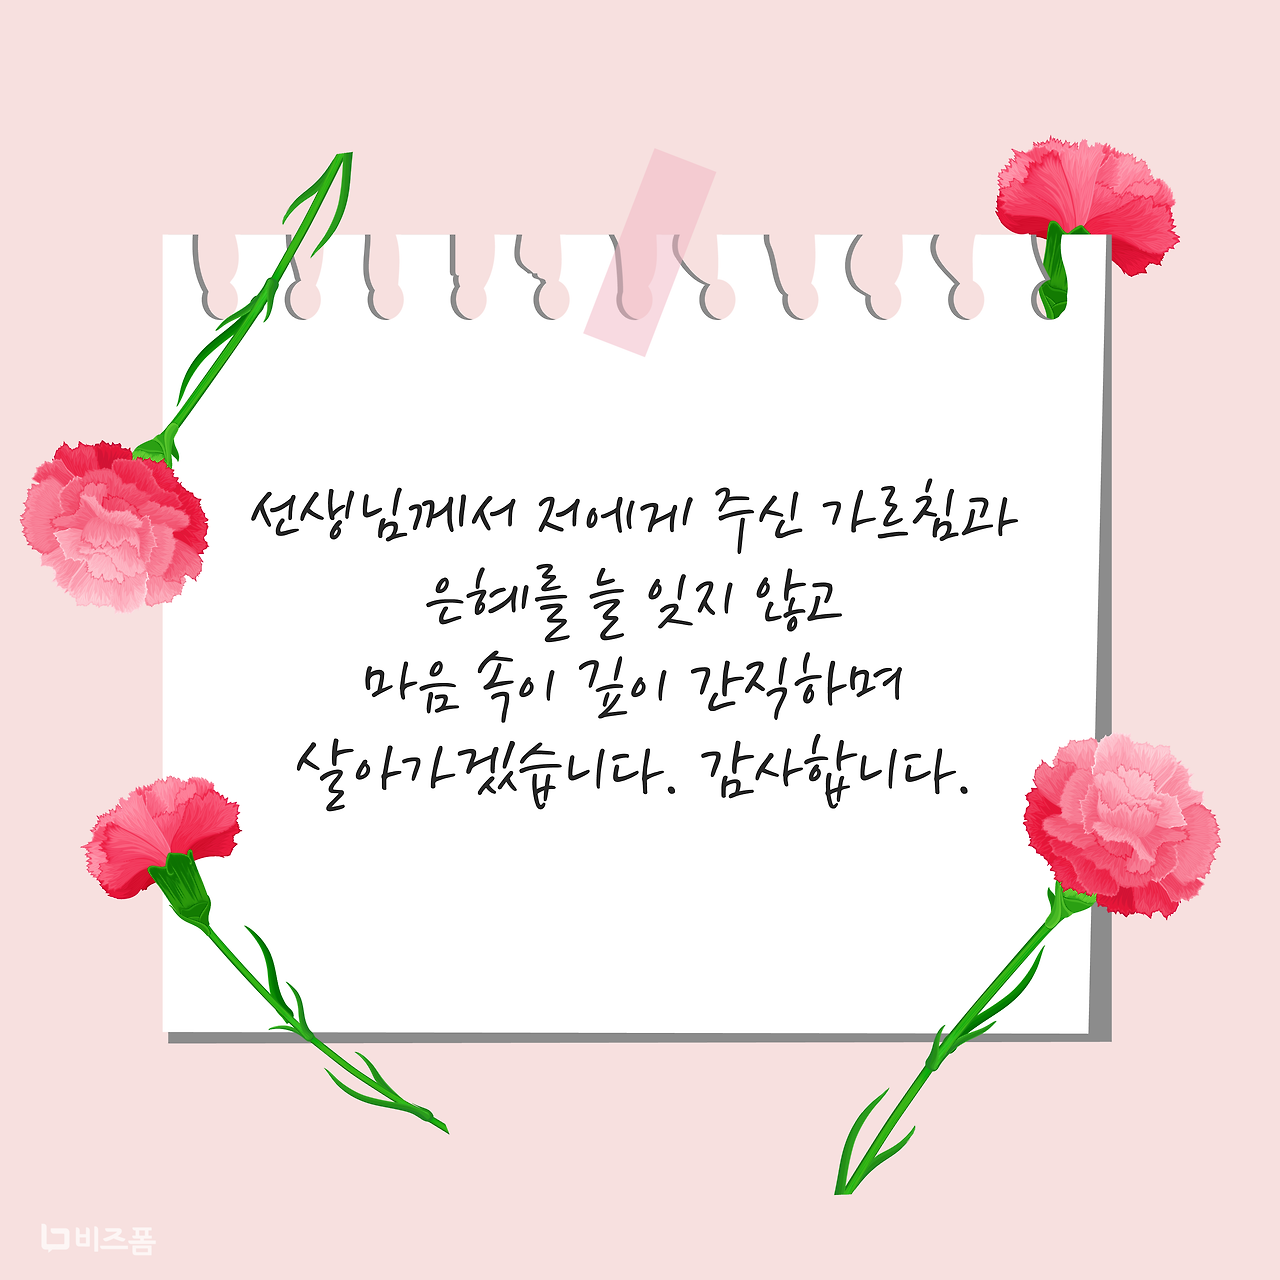 선생님께서 저에게 주신 가르침과
은혜를 늘 잊지 않고
마음 속이 깊이 간직하며
살아가겠습니다. 감사합니다.
비즈폼